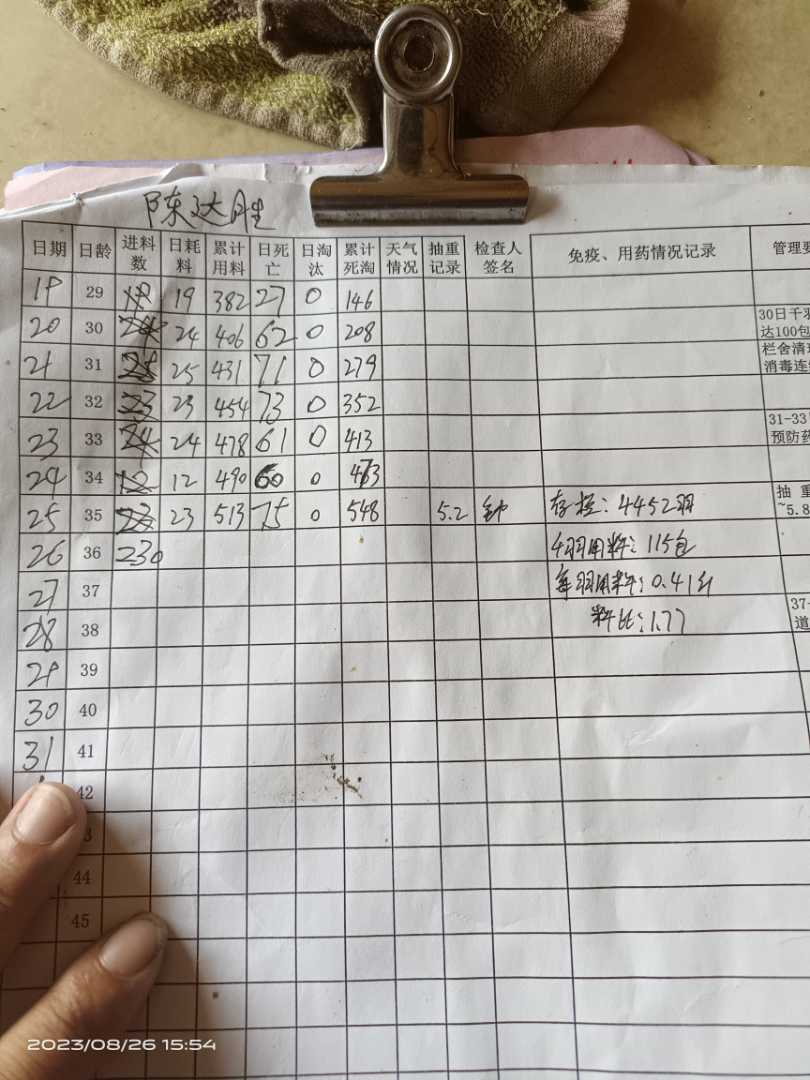 陈达胜
日期 日龄 进料数 日耗料 累计用料 日死亡 日淘汰 累计死淘 天气情况 抽重记录 检查人签名 免疫、用药情况记录 管理要
19 29 19 19 382 27 0 146
20 30 24 24 406 62 0 208 30日千羽
达100包
21 31 25 25 431 71 0 279 栏舍清
消毒连续
22 32 23 23 454 73 0 352
23 33 24 24 478 61 0 413 31-33
预防药
24 34 12 12 490 60 0 473
25 35 23 23 513 75 0 548 5.2 存栏：4452羽 抽 重
~5.8
26 36 230 千羽用料：115包
27 37 每羽用料：0.41斤
28 38 料比：1.77 37-
道
29 39
30 40
31 41
42
3
44
45
2023/08/26 15:54